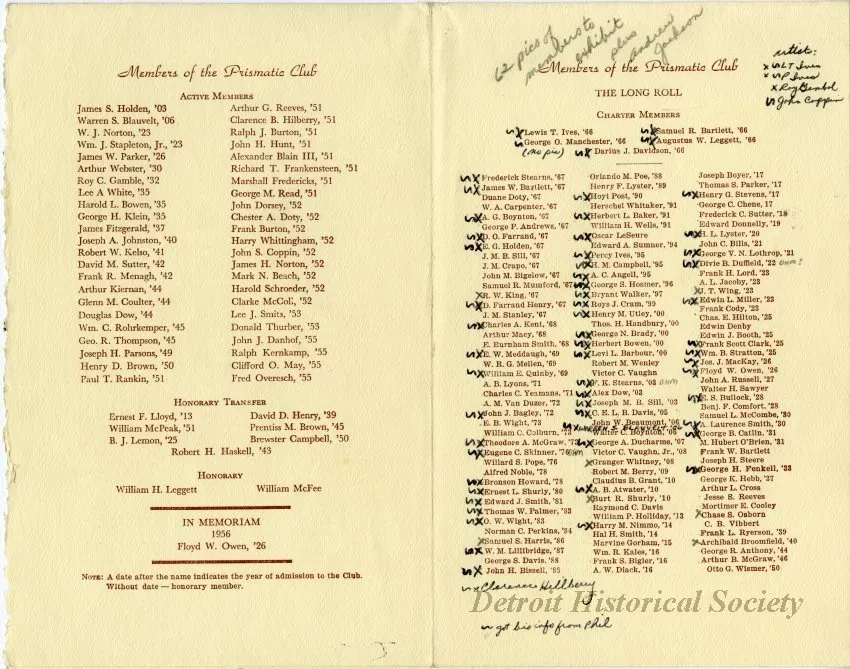 Members of the Prismatic Club
ACTIVE MEMBERS
James S. Holden, '03
Warren S. Blauvelt, '06
W. J. Norton, '23
Wm. J. Stapleton, Jr., '23
James W. Parker, '26
Arthur Webster, '30
Roy C. Gamble, '32
Lee A White, '35
Harold L. Bowen, '35
George H. Klein, '35
James Fitzgerald, '37
Joseph A. Johnston, '40
Robert W. Kelso, '41
David M. Sutter, '42
Frank R. Menagh, '42
Arthur Kiernan, '44
Glenn M. Coulter, '44
Douglas Dow, '44
Wm. C. Rohrkemper, '45
Geo. R. Thompson, '45
Joseph H. Parsons, '49
Henry D. Brown, '50
Paul T. Rankin, '51
Arthur G. Reeves, '51
Clarence B. Hilberry, '51
Ralph J. Burton, '51
John H. Hunt, '51
Alexander Blain III, '51
Richard T. Frankensteen, '51
Marshall Fredericks, '51
George M. Read, '51
John Dorsey, '52
Chester A. Doty, '52
Frank Burton, '52
Harry Whittingham, '52
John S. Coppin, '52
James H. Norton, '52
Mark N. Beach, '52
Harold Schroeder, '52
Clarke McColl, '52
Lee J. Smits, '53
Donald Thurber, '53
John J. Danhof, '55
Ralph Kernkamp, '55
Clifford O. May, '55
Fred Overesch, '55
HONORARY TRANSFER
Ernest F. Lloyd, '13
William McPeak, '51
B. J. Lemon, '25
David D. Henry, '39
Prentis M. Brown, '45
Brewster Campbell, '50
Robert H. Haskell, '43
HONORARY
William H. Leggett
William McFee
IN MEMORIAM
1956
Floyd W. Owen, '26
NOTE: A date after the name indicates the year of admission to the Club.
Without date — honorary member.
62 pics of
members to
exhibit
plus
andrew
Jackson
artists:
x LT Ives
x P Ives
x Roy Gambol
John Coppin
Members of the Prismatic Club
THE LONG ROLL
CHARTER MEMBERS
Lewis T. Ives, '66
George O. Manchester, '66
(no pic)
Samuel R. Bartlett, '66
Augustus W. Leggett, '66
Darius J. Davidson, '66
Frederick Stearns, '67
James W. Bartlett, '67
Duane Doty, '67
W. A. Carpenter, '67
A. G. Boynton, '67
George P. Andrews, '67
D. O. Farrand, '67
E. G. Holden, '67
J. M. B. Sill, '67
J. M. Crapo, '67
John M. Bigelow, '67
Samuel R. Mumford, '67
R. W. King, '67
D. Farrand Henry, '67
J. M. Stanley, '67
Charles A. Kent, '68
Arthur Macy, '68
E. Burnham Smith, '68
E. W. Meddaugh, '69
W. R. G. Mellen, '69
William E. Quinby, '69
A. B. Lyons, '71
Charles C. Yeamans, '71
A. M. Van Duzer, '72
John J. Bagley, '72
E. B. Wight, '73
William C. Colburn, '73
Theodore A. McGraw, '73
Eugene C. Skinner, '76
Willard S. Pope, '76
Alfred Noble, '78
Bronson Howard, '78
Ernest L. Shurly, '80
Edward J. Smith, '81
Thomas W. Palmer, '83
O. W. Wight, '83
Norman C. Perkins, '84
Samuel S. Harris, '86
W. M. Lillibridge, '87
George S. Davis, '88
John H. Bissell, '88
x Clarence Hillberry
got bio info from Phil
Orlando M. Poe, '88
Henry F. Lyster, '89
Hoyt Post, '90
Herschel Whitaker, '91
Herbert L. Baker, '91
William H. Wells, '91
Oscar LeSeure
Edward A. Sumner, '94
Percy Ives, '95
H. M. Campbell, '95
A. C. Angell, '95
George S. Hosmer, '96
Bryant Walker, '97
Roys J. Cram, '99
Henry M. Utley, '00
Thos. H. Handbury, '00
George N. Brady, '00
Herbert Bowen, '00
Levi L. Barbour, '00
Robert M. Wenley
Victor C. Vaughn
F. K. Stearns, '03 DHM
Alex Dow, '03
Joseph M. B. Sill, '03
C. E. L. B. Davis, '05
John W. Beaumont, '06
WARREN S. BLAUVELT '06
Wilfred C. Boynton, '06
George A. Ducharme, '07
Victor C. Vaughn, Jr., '08
Granger Whitney, '08
Robert M. Berry, '09
Claudius B. Grant, '10
A. B. Atwater, '10
Burt R. Shurly, '10
Raymond C. Davis
William P. Holliday, '13
Harry M. Nimmo, '14
Hal H. Smith, '14
Marvine Gorham, '15
Wm. R. Kales, '16
Frank S. Bigler, '16
A. W. Diack, '16
Joseph Boyer, '17
Thomas S. Parker, '17
Henry G. Stevens, '17
George C. Chene, '17
Frederick C. Sutter, '18
Edward Donnelly, '19
H. L. Lyster, '20
John C. Bills, '21
George V. N. Lothrop, '21
Divie B. Duffield, '22 DHM?
Frank H. Lord, '23
A. L. Jacoby, '23
J. T. Wing, '23
Edwin L. Miller, '23
Frank Cody, '23
Chas. E. Hilton, '25
Edwin Denby
Edwin J. Booth, '25
Frank Scott Clark, '25
Wm. B. Stratton, '25
Jos. J. MacKay, '26
Floyd W. Owen, '26
John A. Russell, '27
Walter H. Sawyer
E. S. Bullock, '28
Benj. F. Comfort, '28
Samuel L. McCombe, '30
A. Laurence Smith, '30
George B. Catlin, '31
M. Hubert O'Brien, '31
Frank W. Bartlett
Joseph H. Steere
George H. Fenkell, '33
George K. Hebb, '27
Arthur L. Cross
Jesse S. Reeves
Mortimer E. Cooley
Chase S. Osborn
C. B. Vibbert
Frank L. Ryerson, '39
Archibald Broomfield, '40
George R. Anthony, '44
Arthur B. McGraw, '46
Otto G. Wismer, '50
Detroit Historical Society